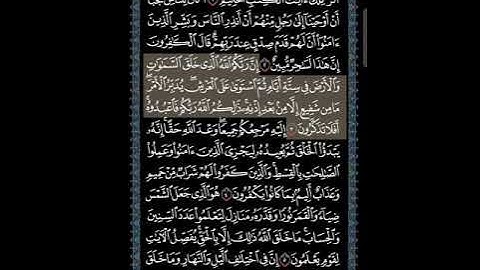 الٓر تِلْكَ ءَايَٰتُ ٱلْكِتَٰبِ ٱلْحَكِيمِ ۝ أَكَانَ لِلنَّاسِ عَجَبًا
أَنْ أَوْحَيْنَآ إِلَىٰ رَجُلٍ مِّنْهُمْ أَنْ أَنذِرِ ٱلنَّاسَ وَبَشِّرِ ٱلَّذِينَ
ءَامَنُوٓا۟ أَنَّ لَهُمْ قَدَمَ صِدْقٍ عِندَ رَبِّهِمْ ۗ قَالَ ٱلْكَٰفِرُونَ
إِنَّ هَٰذَا لَسَٰحِرٌ مُّبِينٌ ۝٢ إِنَّ رَبَّكُمُ ٱللَّهُ ٱلَّذِى خَلَقَ ٱلسَّمَٰوَٰتِ
وَٱلْأَرْضَ فِى سِتَّةِ أَيَّامٍ ثُمَّ ٱسْتَوَىٰ عَلَى ٱلْعَرْشِ ۖ يُدَبِّرُ ٱلْأَمْرَ ۖ
مَا مِن شَفِيعٍ إِلَّا مِنۢ بَعْدِ إِذْنِهِۦ ۚ ذَٰلِكُمُ ٱللَّهُ رَبُّكُمْ فَٱعْبُدُوهُ ۚ
أَفَلَا تَذَكَّرُونَ ۝٣ إِلَيْهِ مَرْجِعُكُمْ جَمِيعًا ۖ وَعْدَ ٱللَّهِ حَقًّا ۚ إِنَّهُۥ
يَبْدَؤُا۟ ٱلْخَلْقَ ثُمَّ يُعِيدُهُۥ لِيَجْزِىَ ٱلَّذِينَ ءَامَنُوا۟ وَعَمِلُوا۟
ٱلصَّٰلِحَٰتِ بِٱلْقِسْطِ ۚ وَٱلَّذِينَ كَفَرُوا۟ لَهُمْ شَرَابٌ مِّنْ حَمِيمٍ
وَعَذَابٌ أَلِيمٌۢ بِمَا كَانُوا۟ يَكْفُرُونَ ۝٤ هُوَ ٱلَّذِى جَعَلَ ٱلشَّمْسَ
ضِيَآءً وَٱلْقَمَرَ نُورًا وَقَدَّرَهُۥ مَنَازِلَ لِتَعْلَمُوا۟ عَدَدَ ٱلسِّنِينَ
وَٱلْحِسَابَ ۚ مَا خَلَقَ ٱللَّهُ ذَٰلِكَ إِلَّا بِٱلْحَقِّ ۚ يُفَصِّلُ ٱلْءَايَٰتِ
لِقَوْمٍ يَعْلَمُونَ ۝٥ إِنَّ فِى ٱخْتِلَٰفِ ٱلَّيْلِ وَٱلنَّهَارِ وَمَا خَلَقَ